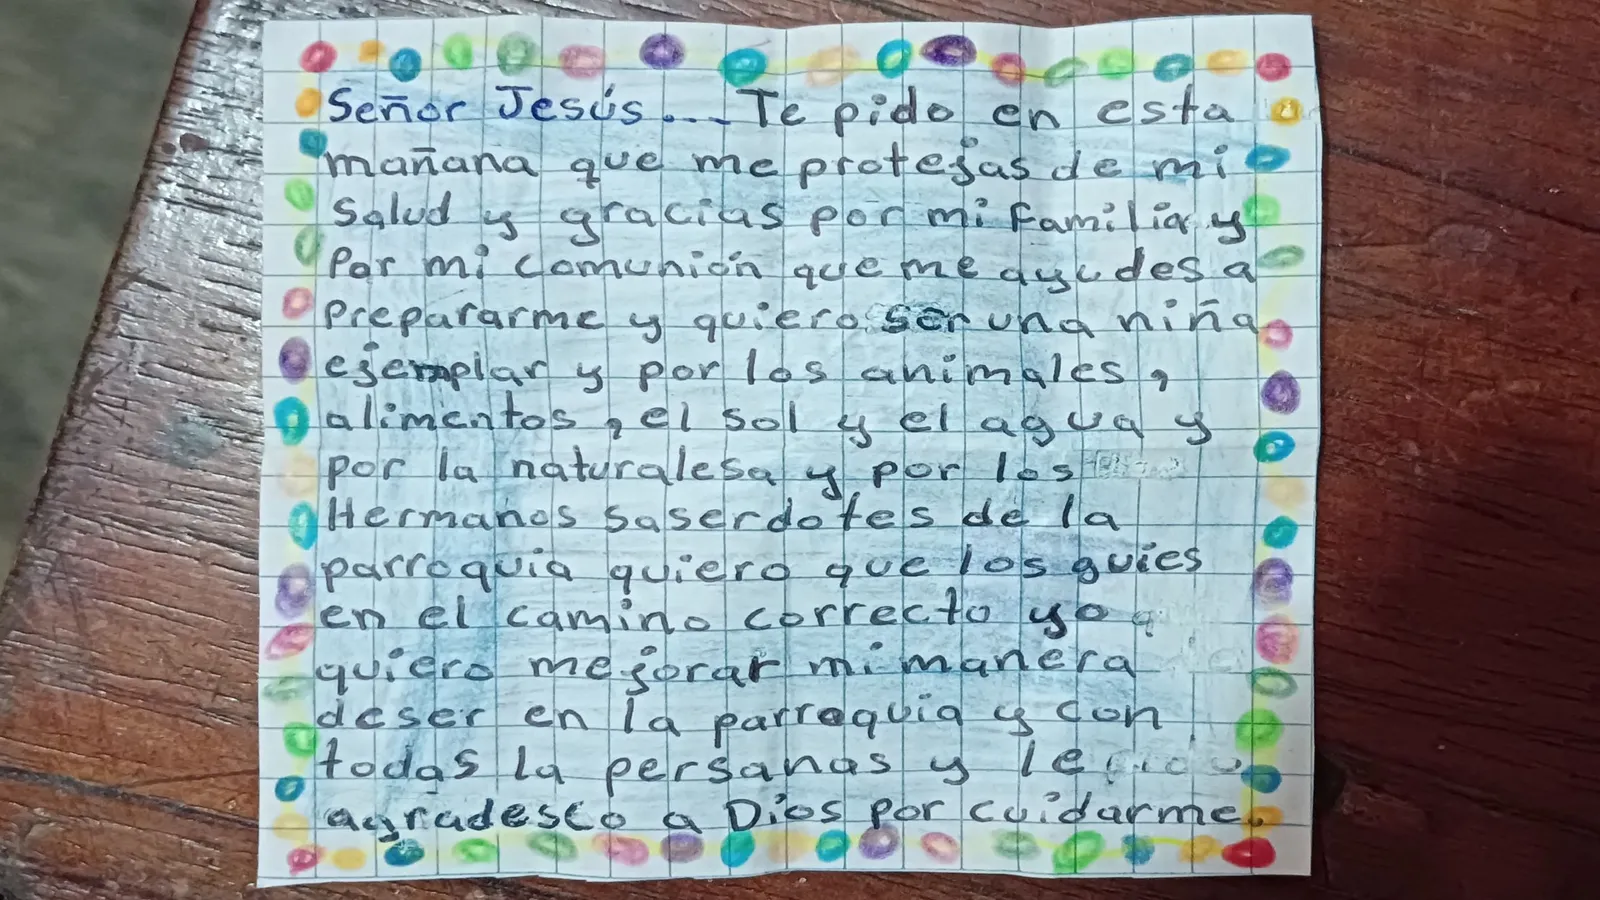 Señor Jesús.... Te pido en esta
mañana que me protejas de mi
Salud y gracias por mi familia y
Por mi comunión que me ayudes a
Prepararme y quiero ser una niña
ejemplar y por los animales,
alimentos, el sol y el agua y
por la naturalesa y por los
Hermanos saserdotes de la
parroquia quiero que los guies
en el camino correcto yo q
quiero mejorar mi manera
deser en la parroquia y con
todas la persanas y le
agradesco a Dios por cuidarme.